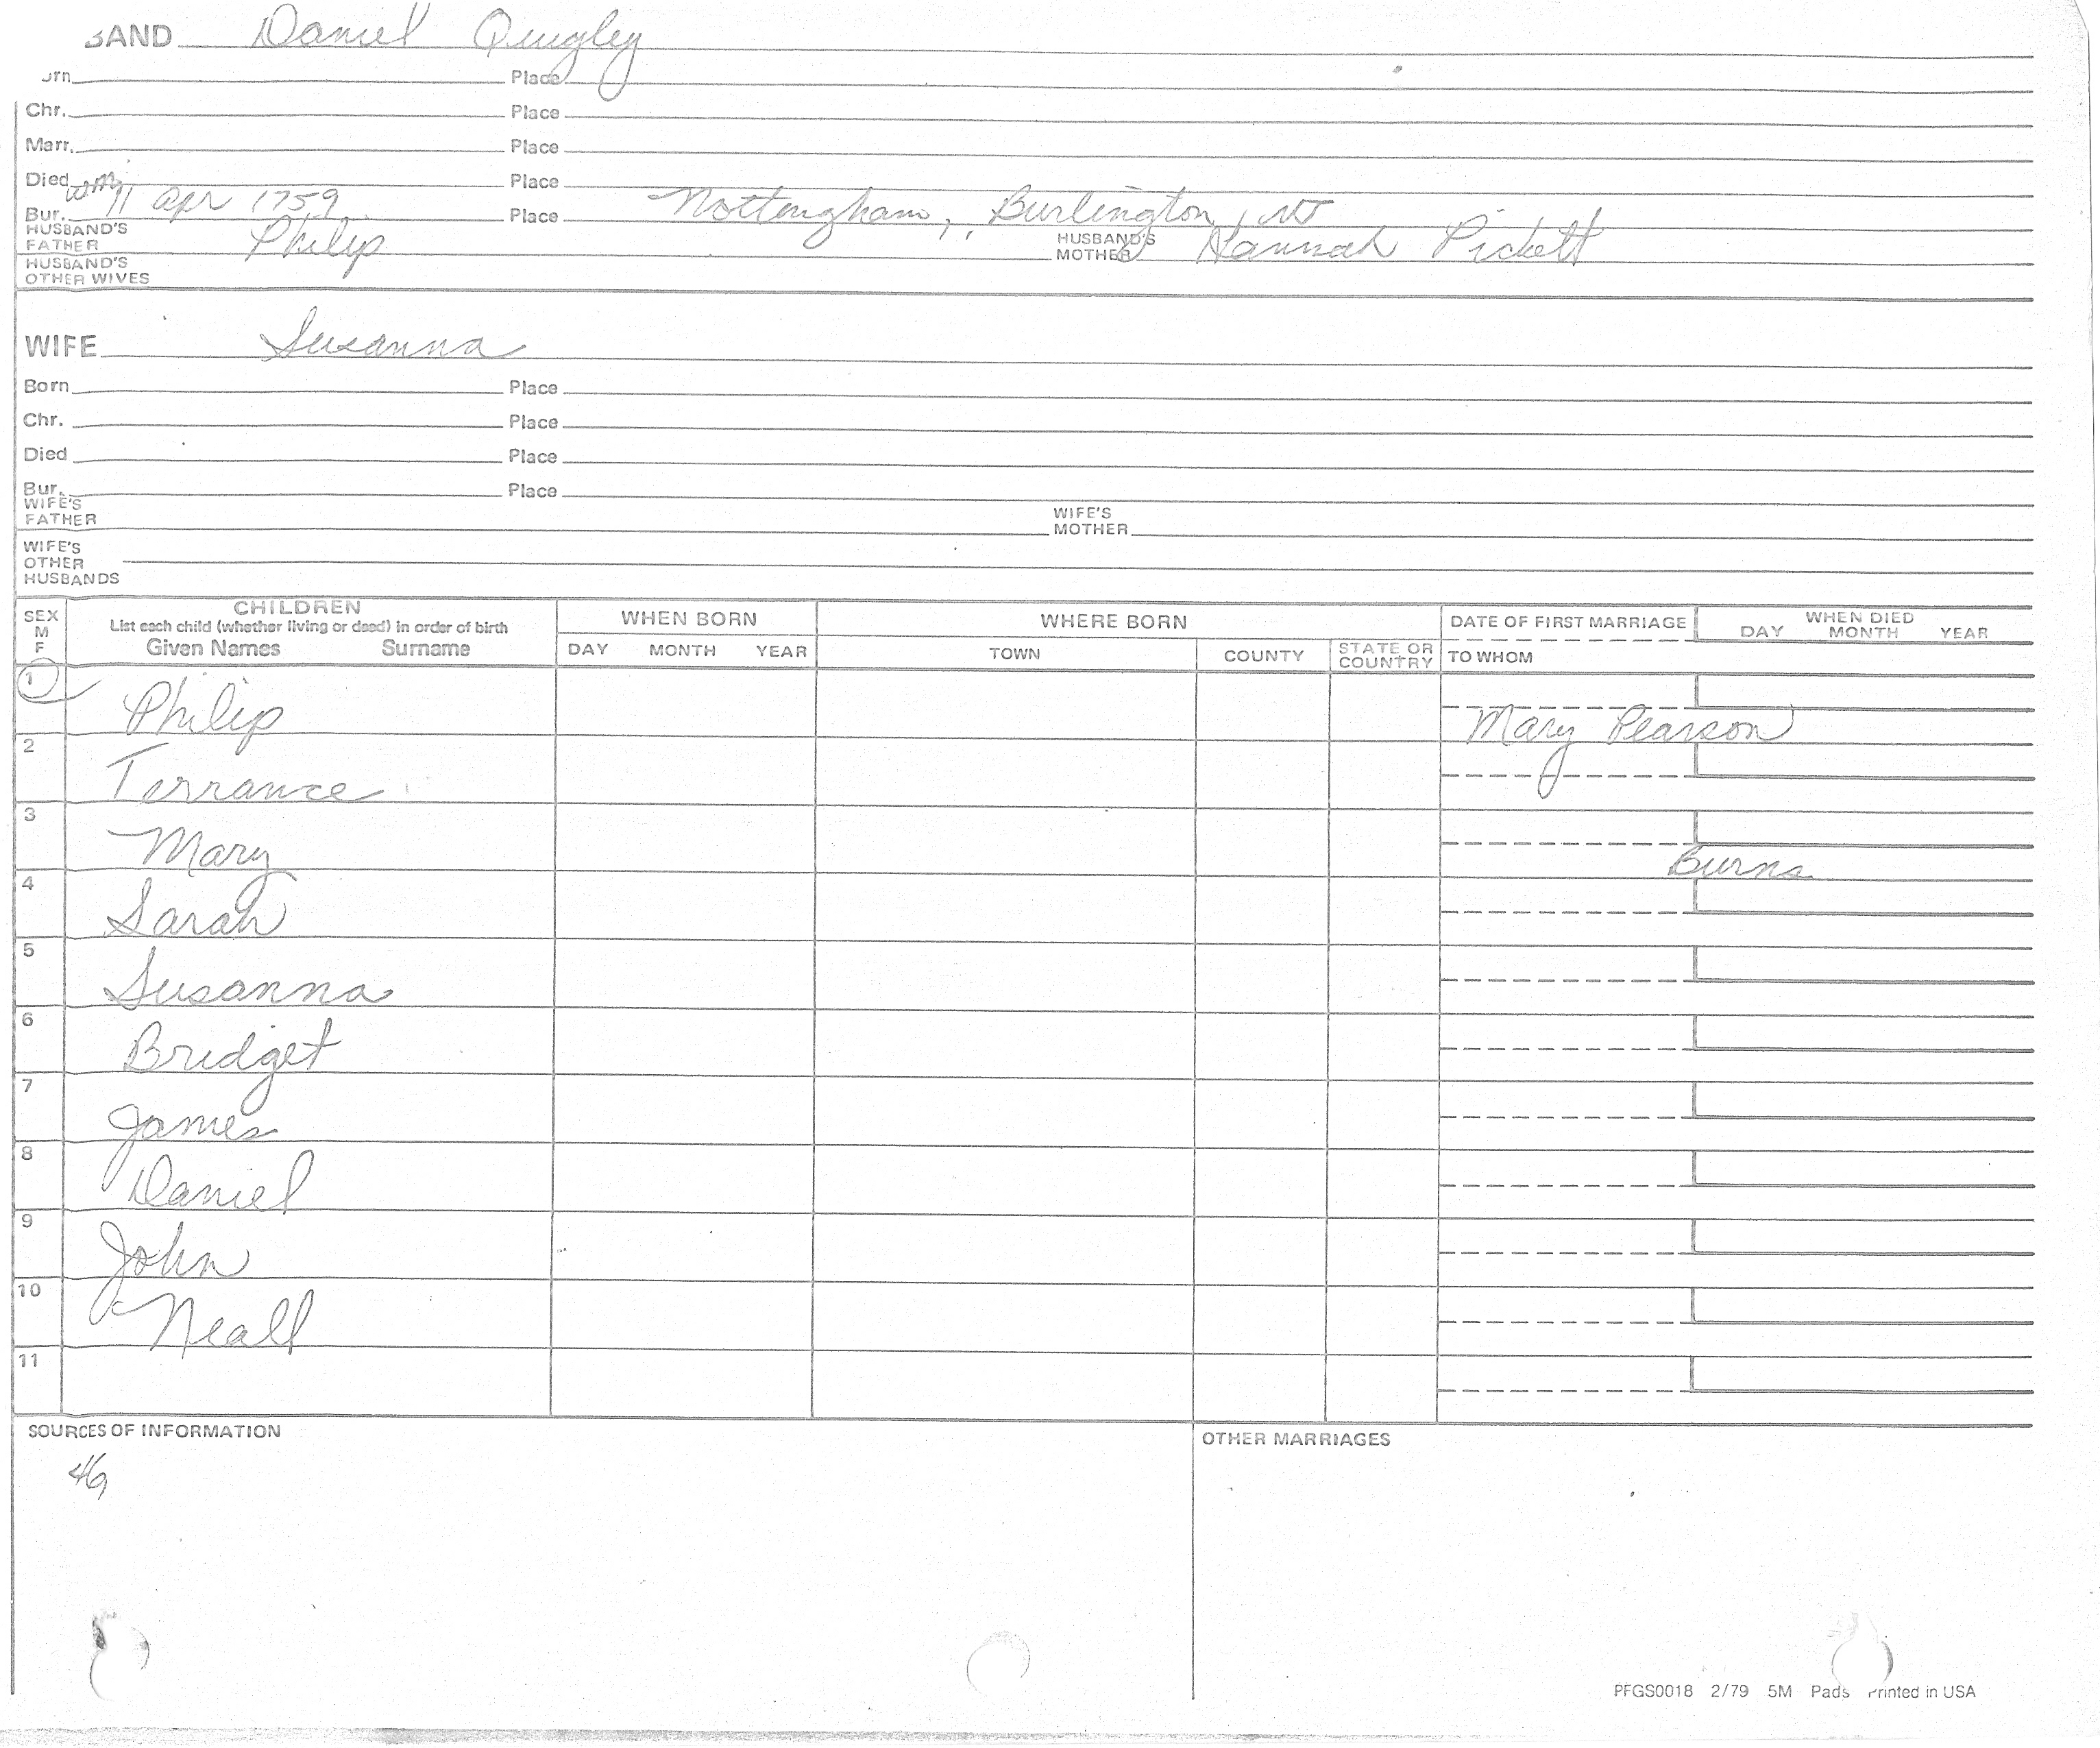 BAND Daniel Quigley
orn Place
Chr. Place
Marr. Place
Died Place
Bur. 11 Apr 1759 Place Nottengham, Burlington, NJ
HUSBAND'S FATHER Philip HUSBAND'S MOTHER Hannah Pickett
HUSBAND'S OTHER WIVES
WIFE Susanna
Born Place
Chr. Place
Died Place
Bur. Place
WIFE'S FATHER WIFE'S MOTHER
WIFE'S OTHER HUSBANDS
SEX M F CHILDREN WHEN BORN WHERE BORN DATE OF FIRST MARRIAGE WHEN DIED
List each child (whether living or dead) in order of birth DAY MONTH YEAR
Given Names Surname DAY MONTH YEAR TOWN COUNTY STATE OR COUNTRY TO WHOM
1 Philip Mary Pearson
2 Terrance
3 Mary Burns
4 Sarah
5 Susanna
6 Bridget
7 James
8 Daniel
9 John
10 Neall
11
SOURCES OF INFORMATION OTHER MARRIAGES
46
PFGS0018 2/79 5M Pads Printed in USA